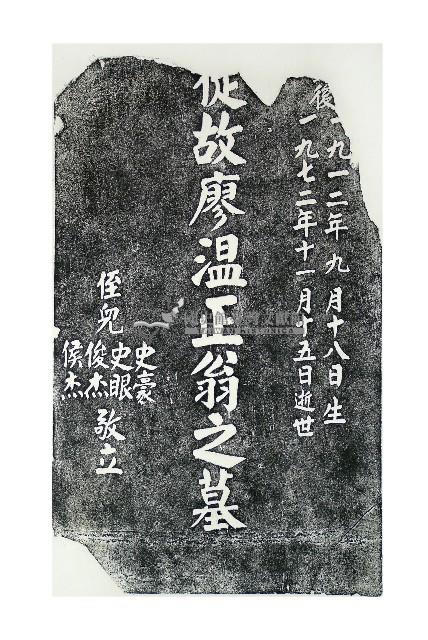 一九一二年九月十八日生
後一九七二年十一月十五日逝世
從故廖温工翁之墓
侄兒
史豪
史眼
俊杰
侯杰
敬立